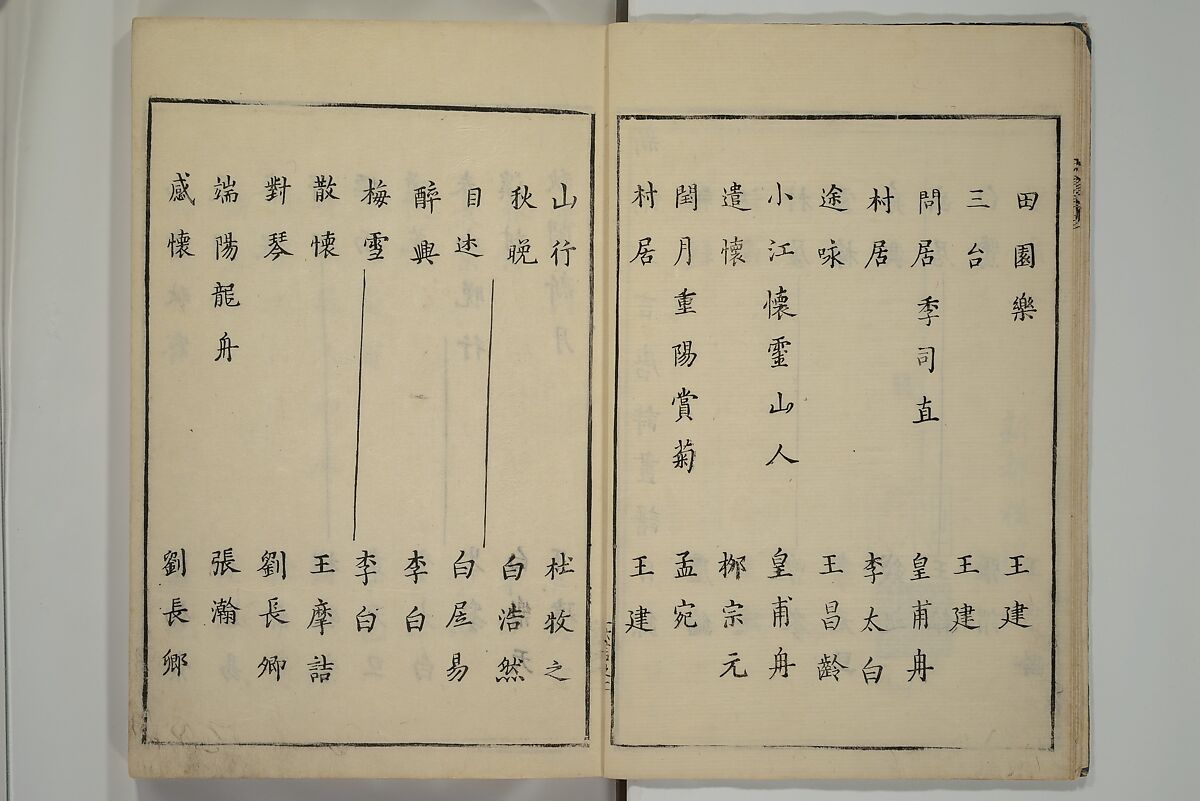 田園樂 王建
三台 王建
問居季司直 皇甫舟
村居 李太白
途咏 王昌齡
小江懷靈山人 皇甫舟
遣懷 栁宗元
閏月重陽賞菊 孟宛
村居 王建
山行 杜牧之
秋晚 白浩然
目述 白居易
醉興 李白
梅雪 李白
散懷 王摩詰
對琴 劉長卿
端陽龍舟 張瀚
感懷 劉長卿